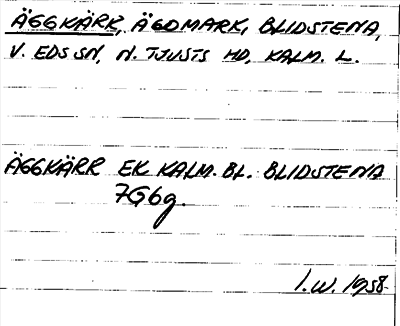 ÄGGKÄRR, ÄGDMARK, BLIDSTENA,
V. EDS SN, N. TJUSTS HD, KALM. L.
ÄGGKÄRR EK KALM. BL. BLIDSTENA
7G6g.
I.W. 1958